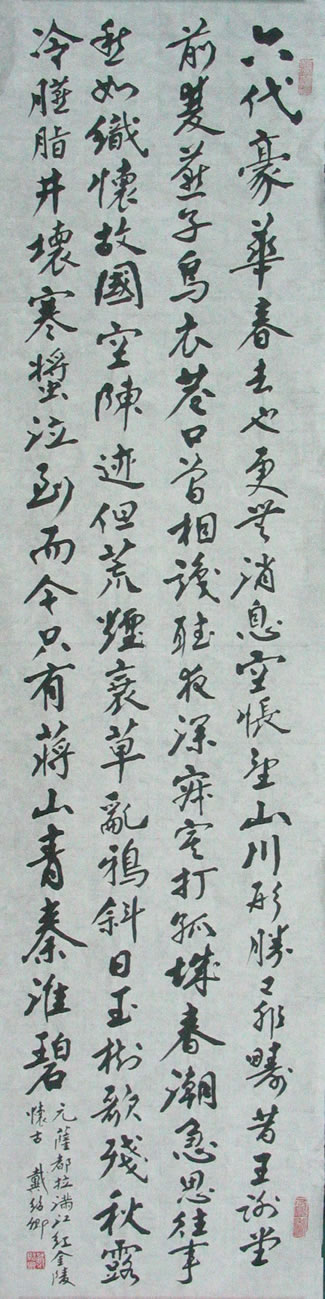 六代豪華春去也更無消息空悵望山川形勝已非疇昔王謝堂
前雙燕子烏衣巷口曾相識聽夜深寂寞打孤城春潮急思往事
愁如織懷故國空陳迹但荒煙衰草亂鴉斜日玉樹歌殘秋露
冷臙脂井壞寒螿泣到而今只有蔣山青秦淮碧
元薩都拉滿江紅金陵
懷古 戴紹卿